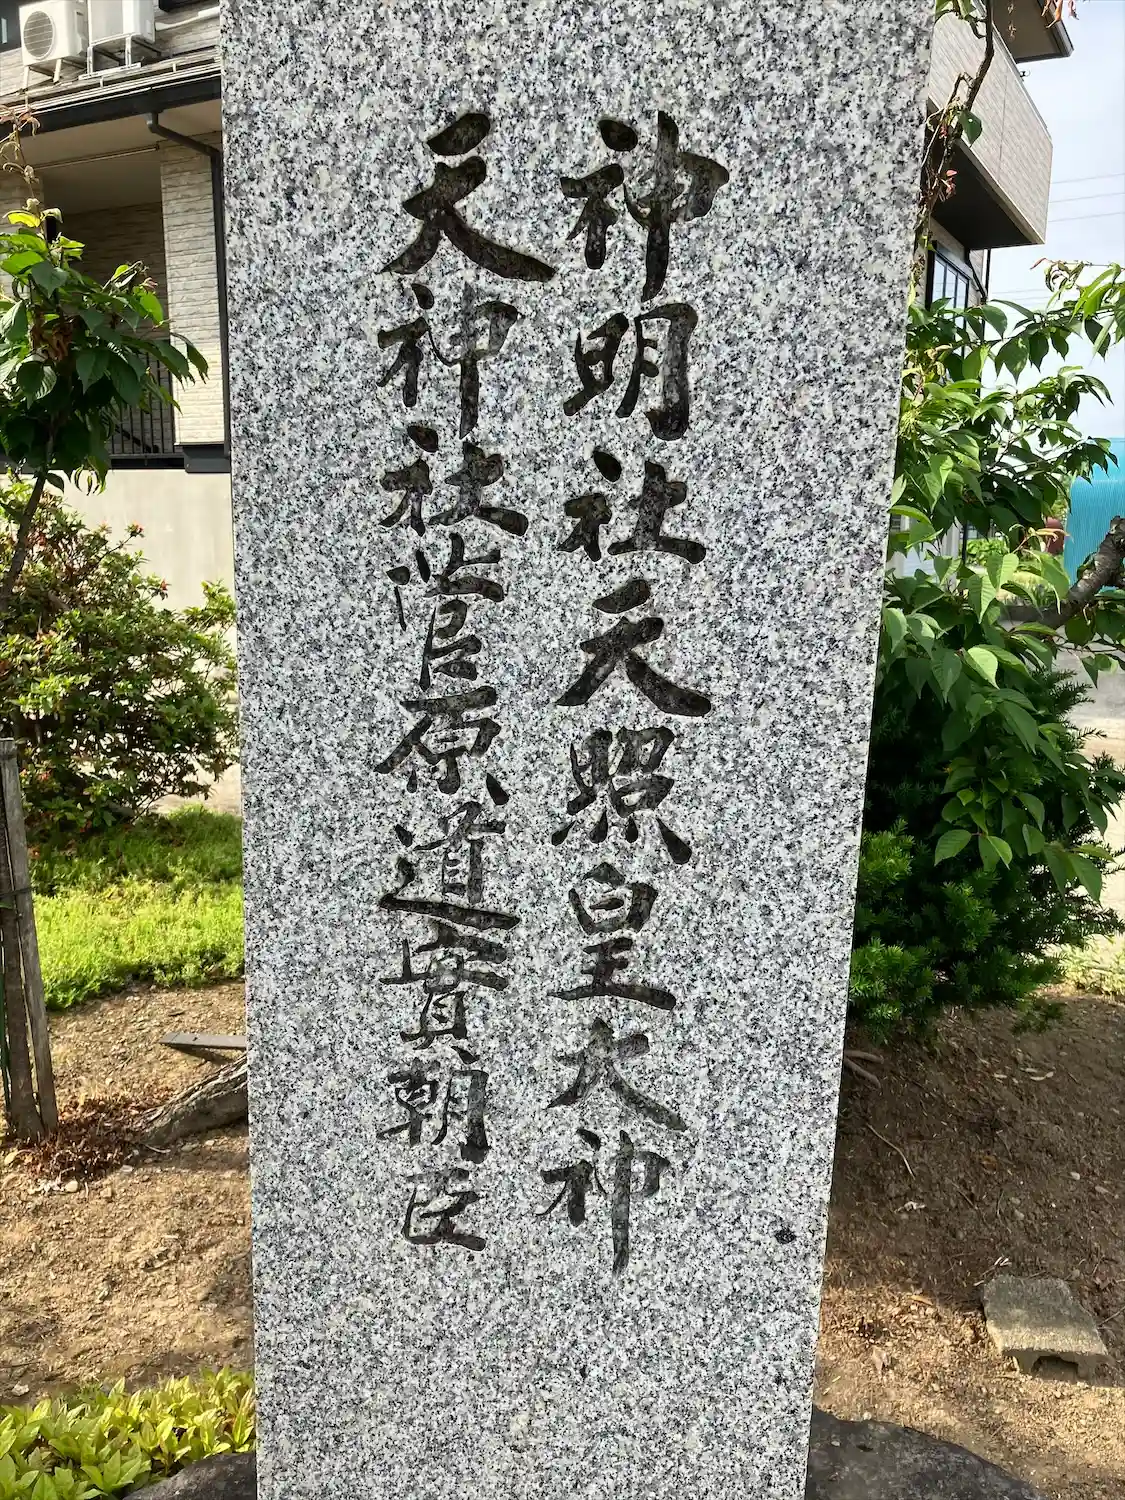 神明社天照皇大神
天神社菅原道真朝臣